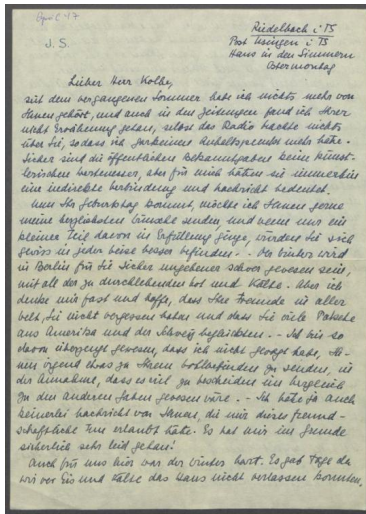 April 47
J. S.
Riedelbach i. TS
Post Usingen i TS
Haus in den Simmern
Ostermontag
Lieber Herr Kolbe,
seit dem vergangenen Sommer habe ich nichts mehr von
Ihnen gehört, und auch in den Zeitungen fand ich Ihrer
nicht Erwähnung getan, selbst das Radio brachte nichts
über Sie, sodass ich gar keinen Anhaltspunkt mehr habe.
Sicher sind die öffentlichen Bekanntgaben keine künst-
lerischen, aber für mich hätten sie immerhin
eine indirekte Verbindung und Nachricht bedeutet.
Nun Ihr Geburtstag kommt, möchte ich Ihnen gerne
meine herzlichsten Wünsche senden, und wenn nur ein
kleiner Teil davon in Erfüllung ginge, würden Sie sich
gewiss in jeder Weise besser befinden. - Der Winter wird
in Berlin für Sie sicher ungeheuer schwer gewesen sein,
mit all der zu durchlebenden Not und Kälte. Aber ich
denke mir fast und hoffe, dass Ihre Freunde in aller
Welt, Sie nicht vergessen haben und dass Sie viele Pakete
aus Amerika und der Schweiz beglückten. - Ich bin so
davon überzeugt gewesen, dass ich nicht gewagt habe, Ih-
nen irgend etwas zu Ihrem Wohlbefinden zu senden, in
der Annahme, dass es viel zu bescheiden im Vergleich
zu den anderen Gaben gewesen wäre. - Ich hatte ja auch
keinerlei Nachricht von Ihnen, die mir dieses freund-
schaftliche Tun erlaubt hätte. Es hat mir im Grunde
sicherlich sehr leid getan!
Auch für uns hier war der Winter hart. Es gab Tage da
wir vor Eis und Kälte das Haus nicht verlassen konnten.